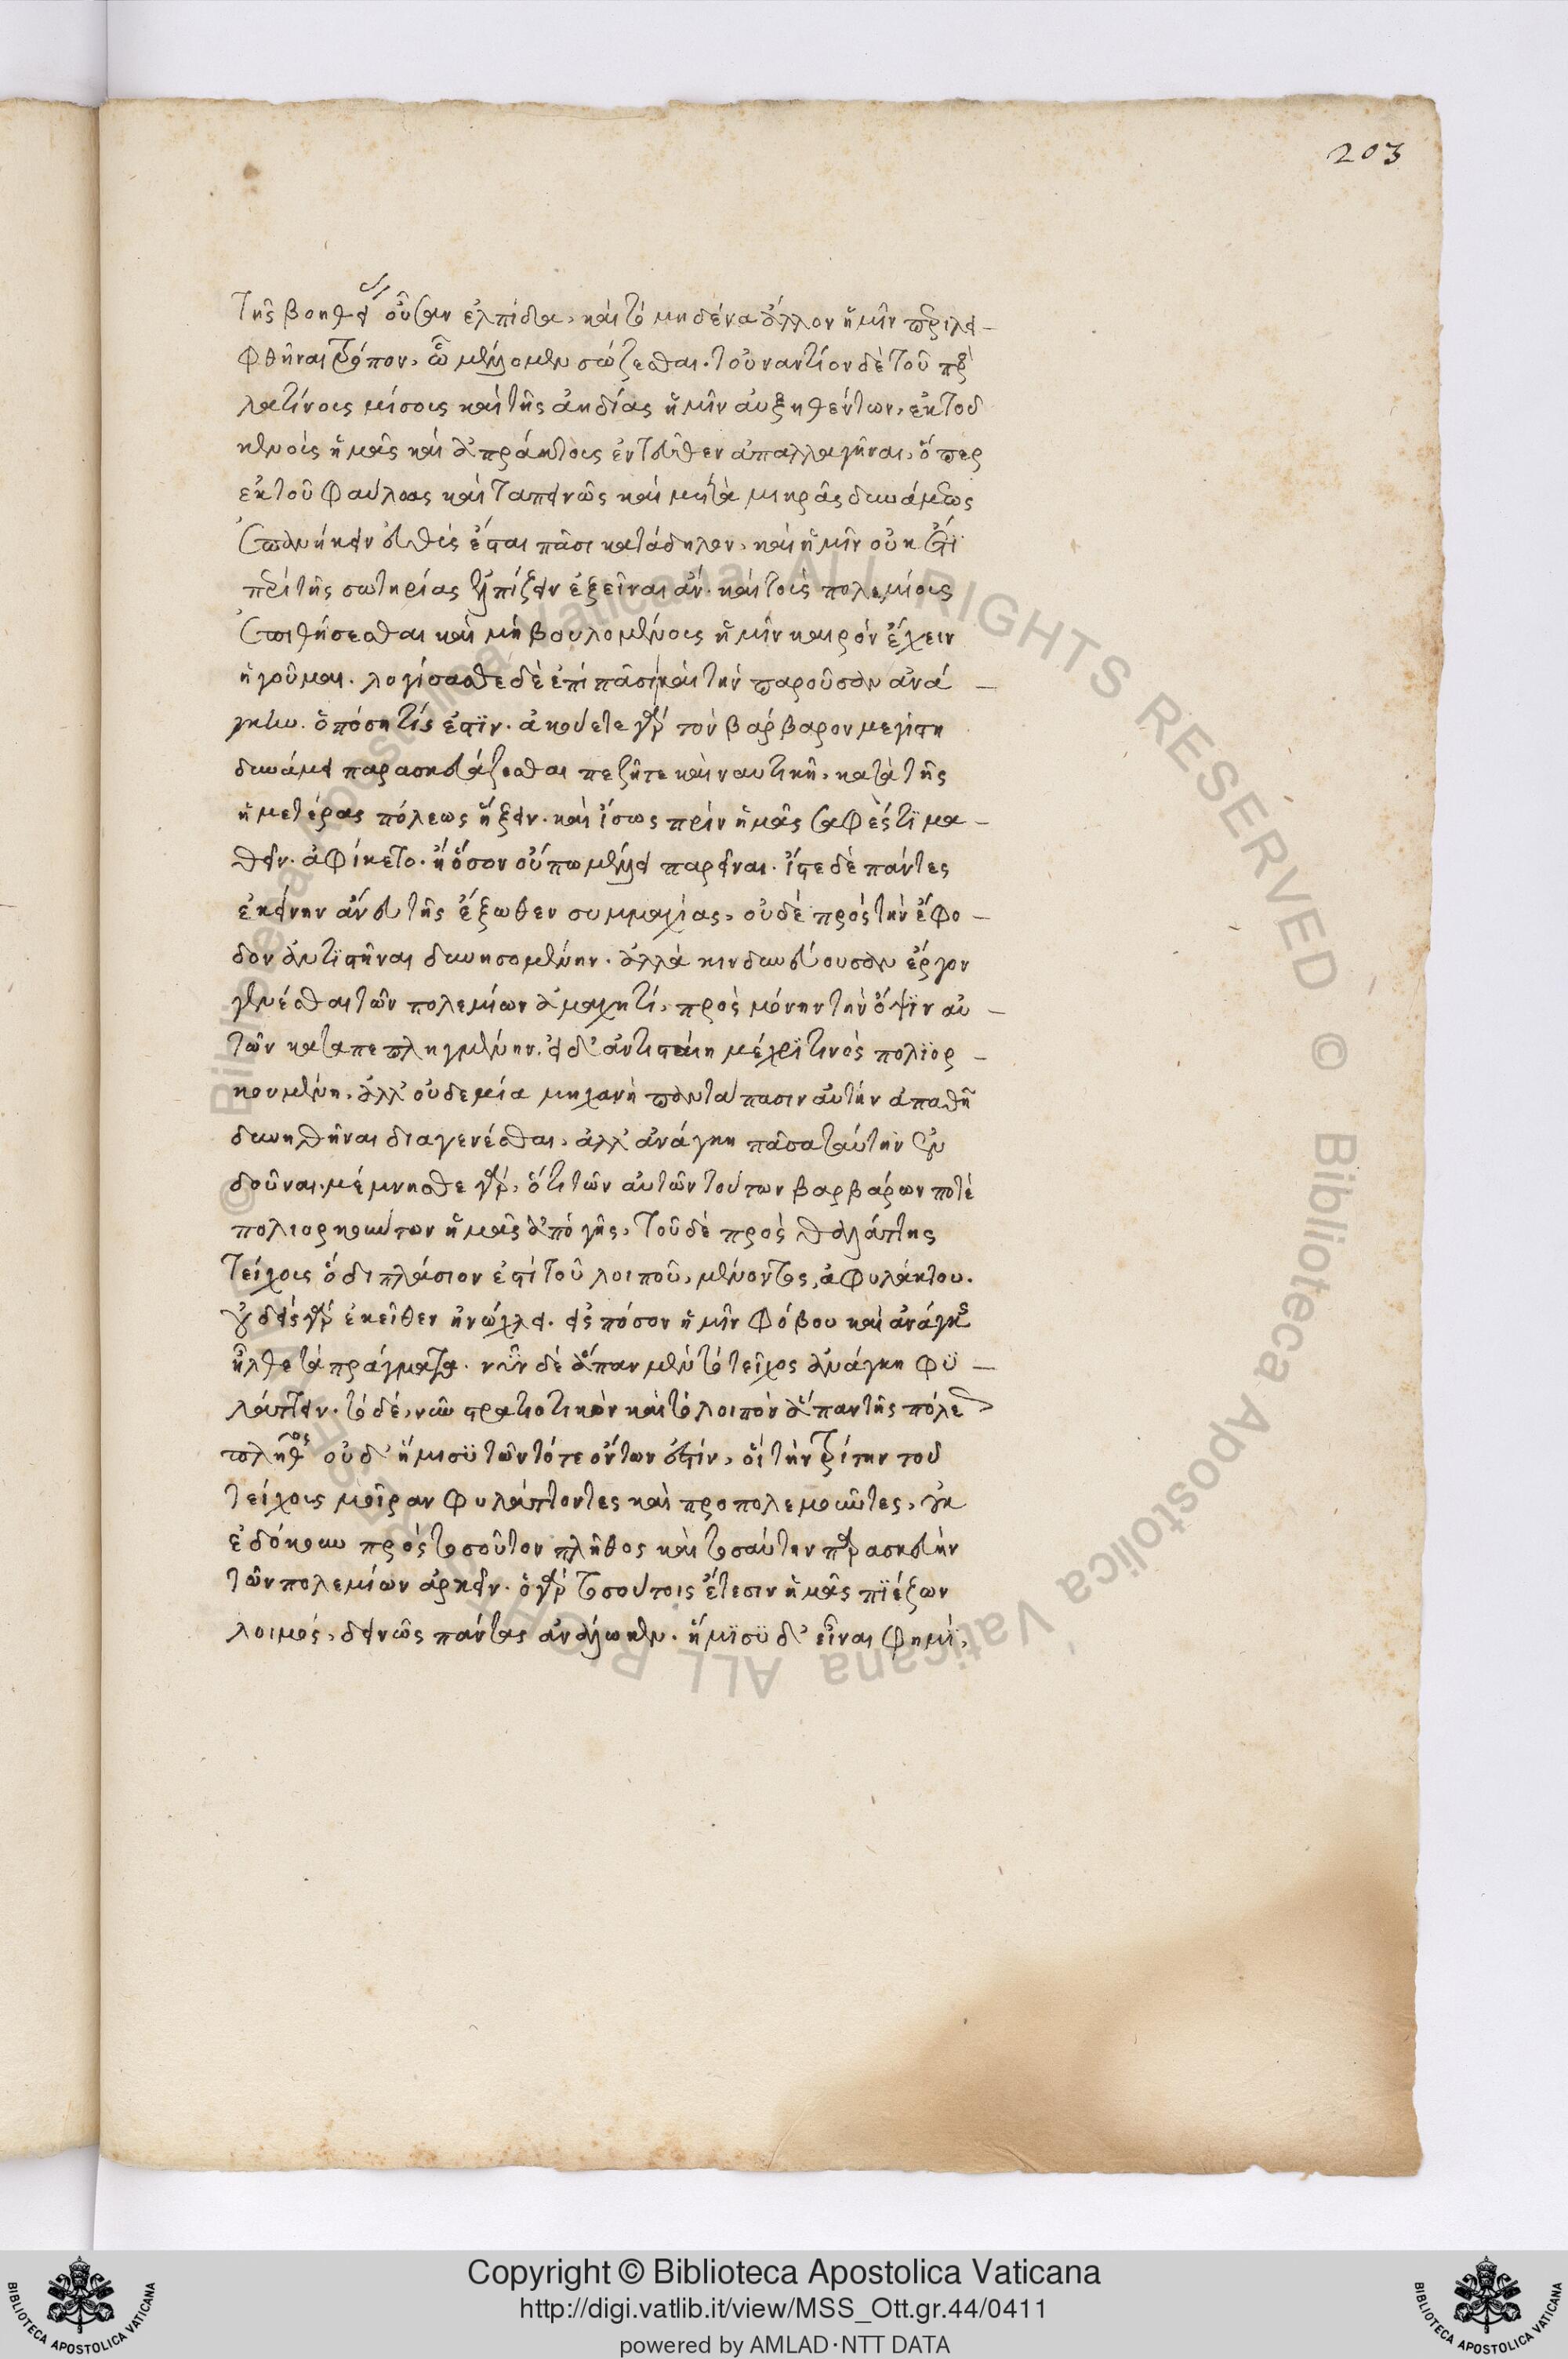 203
τῆς βοηθείας οὖσαν ἐλπίδα, καὶ τὸ μηδένα ἄλλον ἡμῖν περιλει-
φθῆναι τρόπον, ᾧ μέλλομεν σώζεσθαι. τοὐναντίον δὲ τοῦ πρὸς
λατίνους μίσους καὶ τῆς ἀηδίας ἡμῖν αὐξηθέντων, ἐκ τοῦ
κενοὺς ἡμᾶς καὶ ἀπράκτους ἐντεῦθεν ἀπαλλαγῆναι, ὅπερ
ἐκ τοῦ φαύλως καὶ ταπεινῶς καὶ μετὰ μικρᾶς δυνάμεως
ἐπανήκειν εὐθὺς ἔσται πᾶσι κατάδηλον, καὶ ἡμῖν οὐκ ἔτι
περὶ τῆς σωτηρίας ἐλπίζειν ἐξεῖναι ἂν. καὶ τοὺς πολεμίους
ἐπιθήσεσθαι καὶ μὴ βουλομένοις ἡμῖν καιρὸν ἔχειν
ἡγοῦμαι. λογίσασθε δὲ ἐπὶ πᾶσι καὶ τὴν παροῦσαν ἀνά-
γκην. ὁπόση τίς ἐστιν. ἀκούετε γὰρ τὸν βάρβαρον μεγίστη
δυνάμει παρασκευάζεσθαι πεζῆ τε καὶ ναυτικῆ, κατὰ τῆς
ἡμετέρας πόλεως ἥξειν. καὶ ἴσως πρὶν ἡμᾶς σαφές τι μα-
θεῖν. ἀφίκετο. ἢ ὅσον οὔπω μέλλει παρεῖναι. ἴστε δὲ πάντες
ἐκείνην ἄνευ τῆς ἔξωθεν συμμαχίας, οὐδὲ πρὸς τὴν ἔφο-
δον ἀντιστῆναι δυνησομένην. ἀλλὰ κινδυνεύουσαν ἔργον
γενέσθαι τῶν πολεμίων ἀμαχητί, πρὸς μόνην τὴν ὄψιν αὐ-
τῶν καταπεπληγμένην. εἰ δ' ἀντισταίη μέχρι τινὸς πολιορ-
κουμένη, ἀλλ' οὐδεμία μηχανὴ παντάπασιν αὐτὴν ἀπαθῆ
δυνηθῆναι διαγενέσθαι, ἀλλ' ἀνάγκη πᾶσα ταύτην ἐν
δοῦναι. μέμνησθε γὰρ, ὅτι τῶν αὐτῶν τούτων βαρβάρων ποτὲ
πολιορκούντων ἡμᾶς ἀπὸ γῆς, τοῦ δὲ πρὸς θαλάττης
τείχους ὃ διπλάσιον ἐστὶ τοῦ λοιποῦ, μένοντος, ἀφυλάκτου.
οὐδεὶς γὰρ ἐκεῖθεν ἠνώχλει. εἰς πόσον ἡμῖν φόβου καὶ ἀνάγκης
ἦλθε τὰ πράγματα. νῦν δὲ ἅπαν μὲν τὸ τεῖχος ἀνάγκη φυ-
λάττειν. τὸ δὲ, νῦν στρατιοτικὸν καὶ τὸ λοιπὸν ἅπαν τῆς πόλεως
πλῆθος οὐδ' ἥμισυ τῶν τότε ὄντων ἐστίν, οἳ τὴν τρίτην τοῦ
τείχους μοῖραν φυλάττοντες καὶ προπολεμοῦντες, οὐκ
ἐδόκουν πρὸς τοσοῦτον πλῆθος καὶ τοσαύτην παρασκευὴν
τῶν πολεμίων ἀρκεῖν. ὁ γὰρ τοσούτοις ἔτεσιν ἡμᾶς πιέζων
λοιμός, δεινῶς πάντας ἀνάλωκεν. ἥμισυ δ' εἶναι φημὶ,
Copyright © Biblioteca Apostolica Vaticana
http://digi.vatlib.it/view/MSS_Ott.gr.44/0411
powered by AMLAD·NTT DATA
BIBLIOTECA APOSTOLICA VATICANA
BIBLIOTECA APOSTOLICA VATICANA